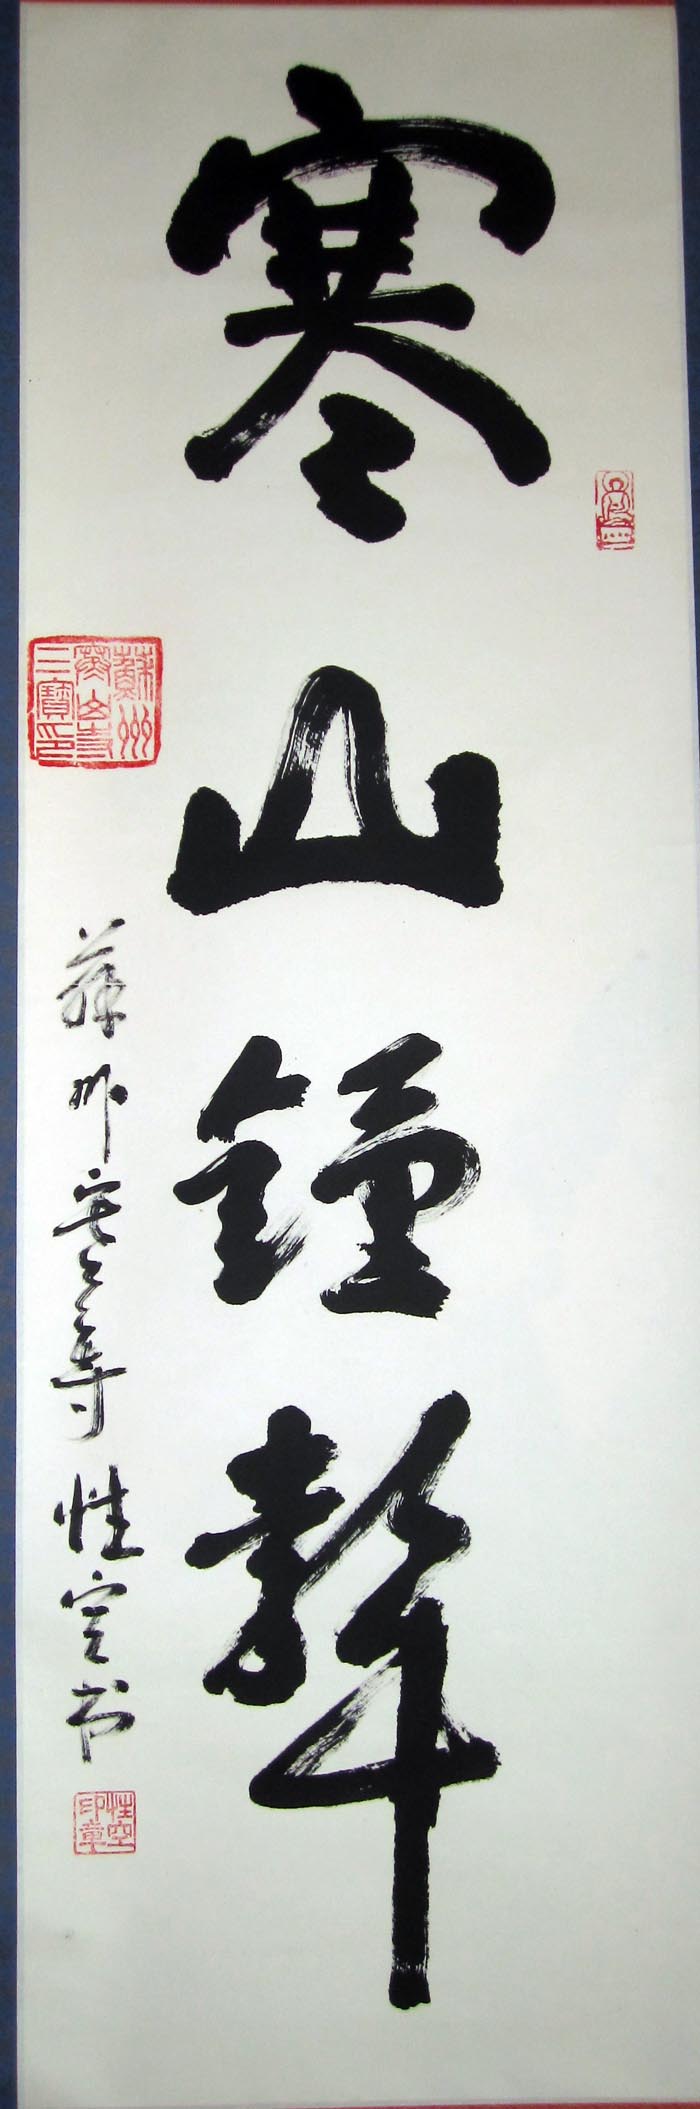 寒山鐘聲
蘇州寒山寺 性空书
蘇州
寒山寺
三寶印
性空
印章